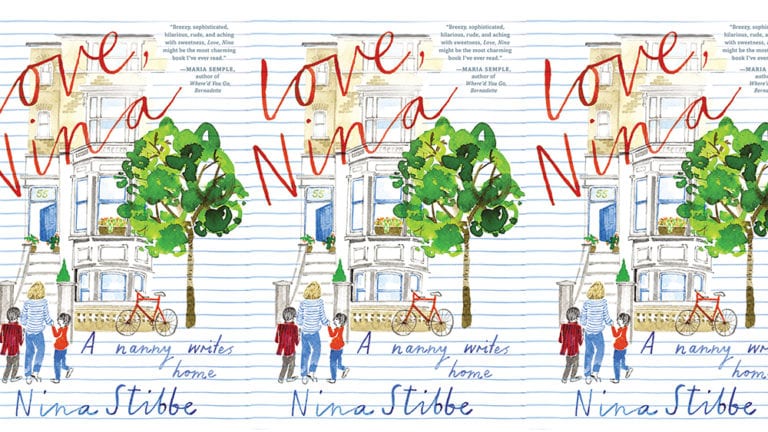 "Breezy, sophisticated,
hilarious, rude, and aching
with sweetness, Love, Nina
might be the most charming
book I've ever read."
—MARIA SEMPLE,
author of
Where'd You Go,
Bernadette
Love,
Nina
55
A nanny writes
home
Nina Stibbe
"Breezy, sophisticated,
hilarious, rude, and aching
with sweetness, Love, Nina
might be the most charming
book I've ever read."
—MARIA SEMPLE,
author of
Where'd You Go,
Bernadette
Love,
Nina
55
A nanny writes
home
Nina Stibbe
"Breezy,
hilarious, rude,
with sweetness,
might be the
book I've
—MARIA
Where'd
Love,
Nina
55
A nanny
home
Nina Stibbe